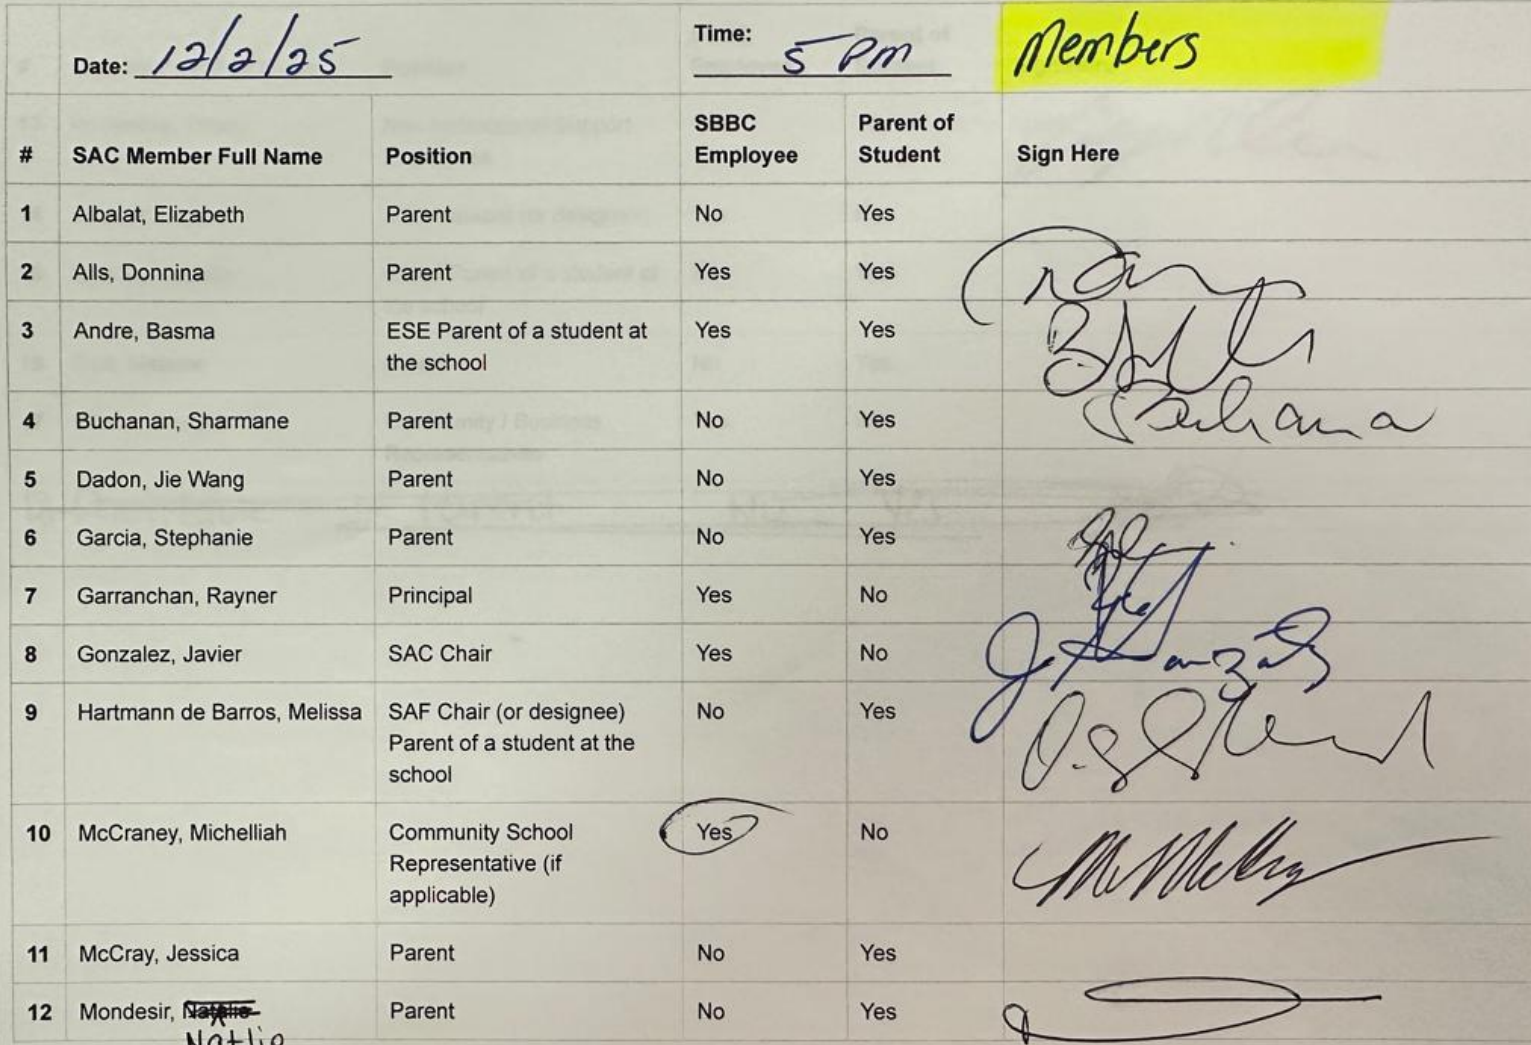 Date: 12/2/25 Time: 5 PM Members
# SAC Member Full Name Position SBBC Employee Parent of Student Sign Here
1 Albalat, Elizabeth Parent No Yes
2 Alls, Donnina Parent Yes Yes
3 Andre, Basma ESE Parent of a student at Yes Yes
the school
4 Buchanan, Sharmane Parent No Yes
5 Dadon, Jie Wang Parent No Yes
6 Garcia, Stephanie Parent No Yes
7 Garranchan, Rayner Principal Yes No
8 Gonzalez, Javier SAC Chair Yes No
9 Hartmann de Barros, Melissa SAF Chair (or designee) No Yes
Parent of a student at the
school
10 McCraney, Michelliah Community School Yes No
Representative (if
applicable)
11 McCray, Jessica Parent No Yes
12 Mondesir, Natalie Parent No Yes
Natlie